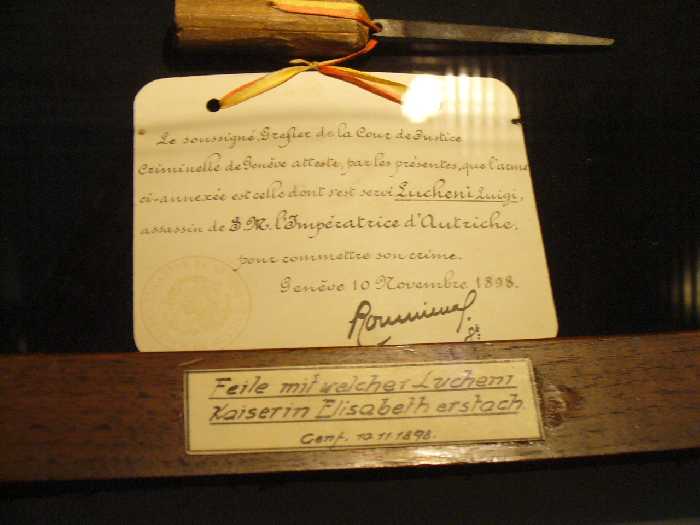 Le soussigné, Greffier de la Cour de Justice
Criminelle de Genève atteste, par les présentes, que l'arme
ci-annexée est celle dont s'est servi Lucheni Luigi,
assassin de S. M. l'Impératrice d'Autriche,
pour commettre son crime.
Genève 10 Novembre 1898.
Feile mit welcher Lucheni
Kaiserin Elisabeth erstach.
Genf. 10.11.1898.